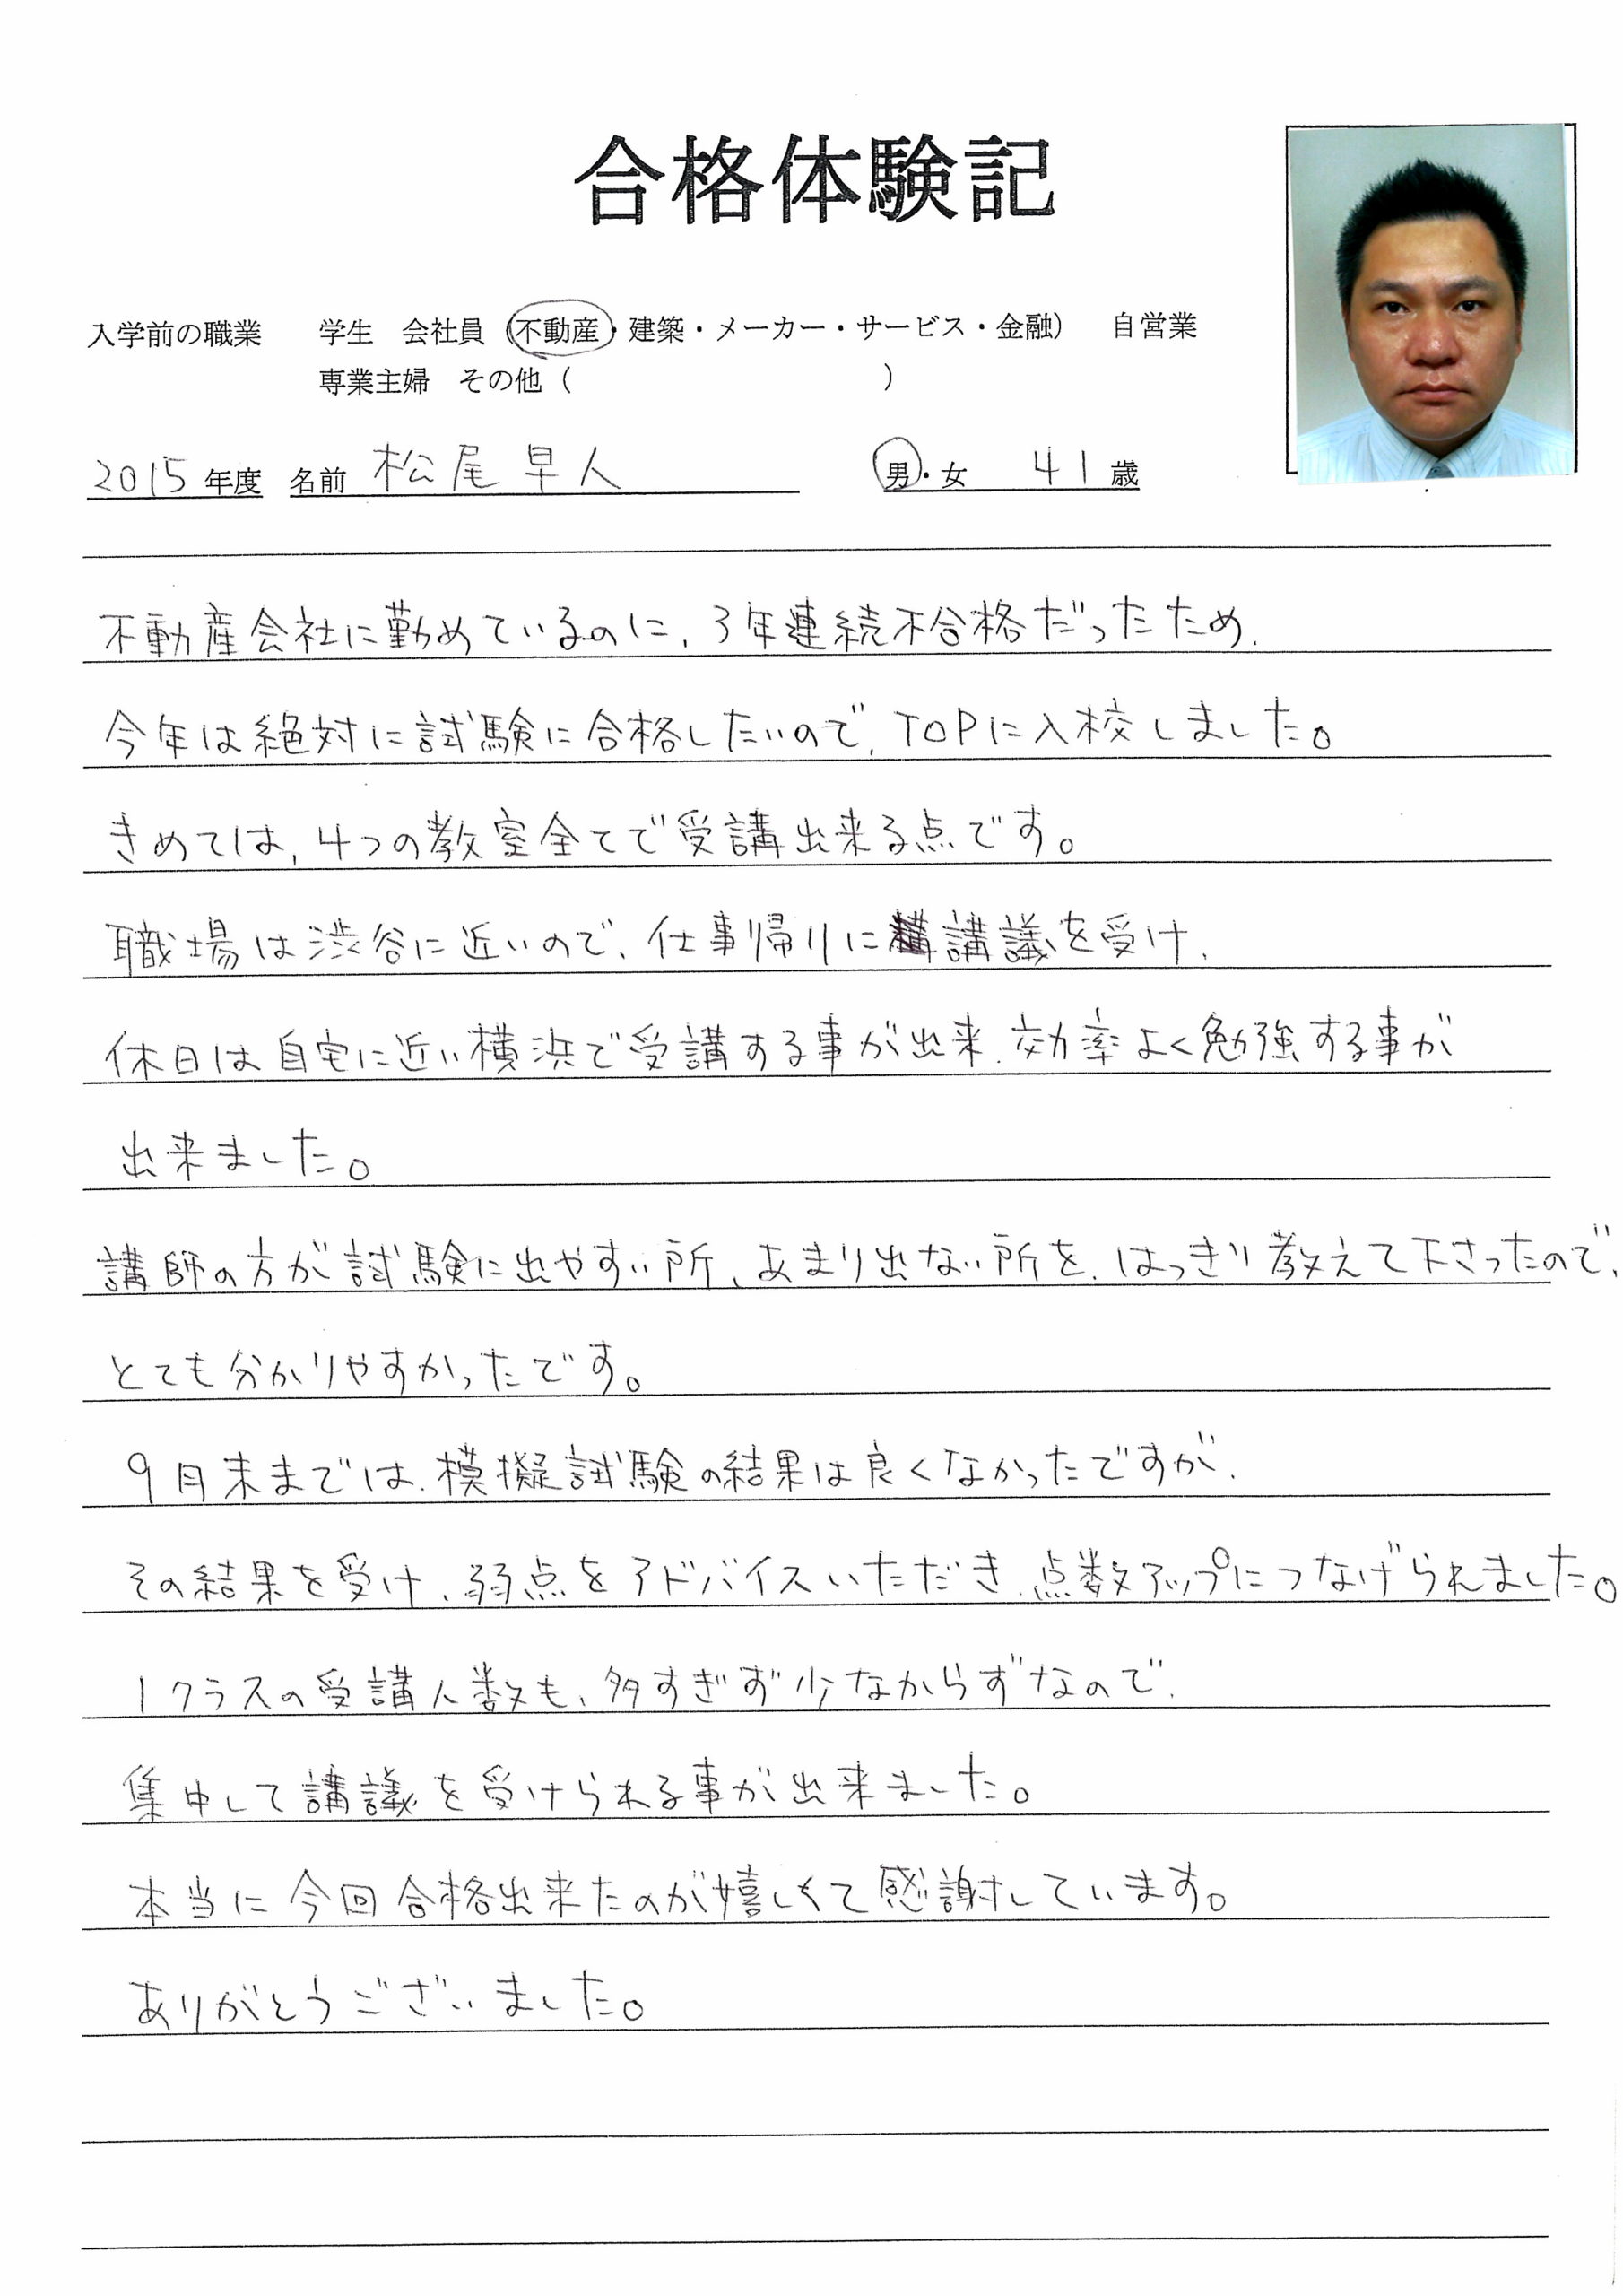 合格体験記
入学前の職業 学生 会社員 (不動産・建築・メーカー・サービス・金融) 自営業
専業主婦 その他 ( )
2015年度 名前 松尾早人 男・女 41歳
不動産会社に勤めているのに、3年連続不合格だったため、
今年は絶対に試験に合格したいので、TOPに入校しました。
きめては、4つの教室全てで受講出来る点です。
職場は渋谷に近いので、仕事帰りに講議を受け、
休日は自宅に近い横浜で受講する事が出来、効率よく勉強する事が
出来ました。
講師の方が試験に出やすい所、あまり出ない所を、はっきり教えて下さったので、
とても分かりやすかったです。
9月末までは、模擬試験の結果は良くなかったですが、
その結果を受け、弱点をアドバイスいただき、点数アップにつなげられました。
1クラスの受講人数も、多すぎず少なからずなので、
集中して講議を受けられる事が出来ました。
本当に今回合格出来たのが嬉しくて感謝しています。
ありがとうございました。